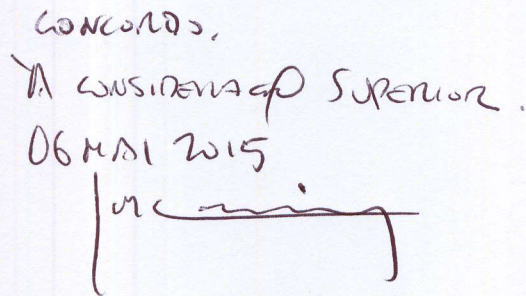 CONCORDO.
À CONSIDERAÇÃO SUPERIOR.
06 MAI 2015